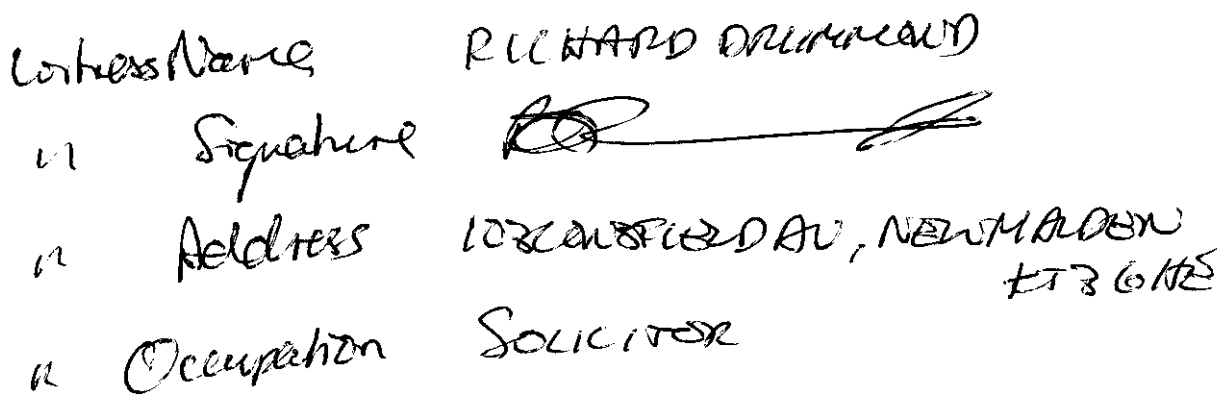 Witness Name RICHARD DRUMMOND
" Signature
" Address CONSFIELD AV, NEW MALDEN
KT3 6HE
" Occupation SOLICITOR